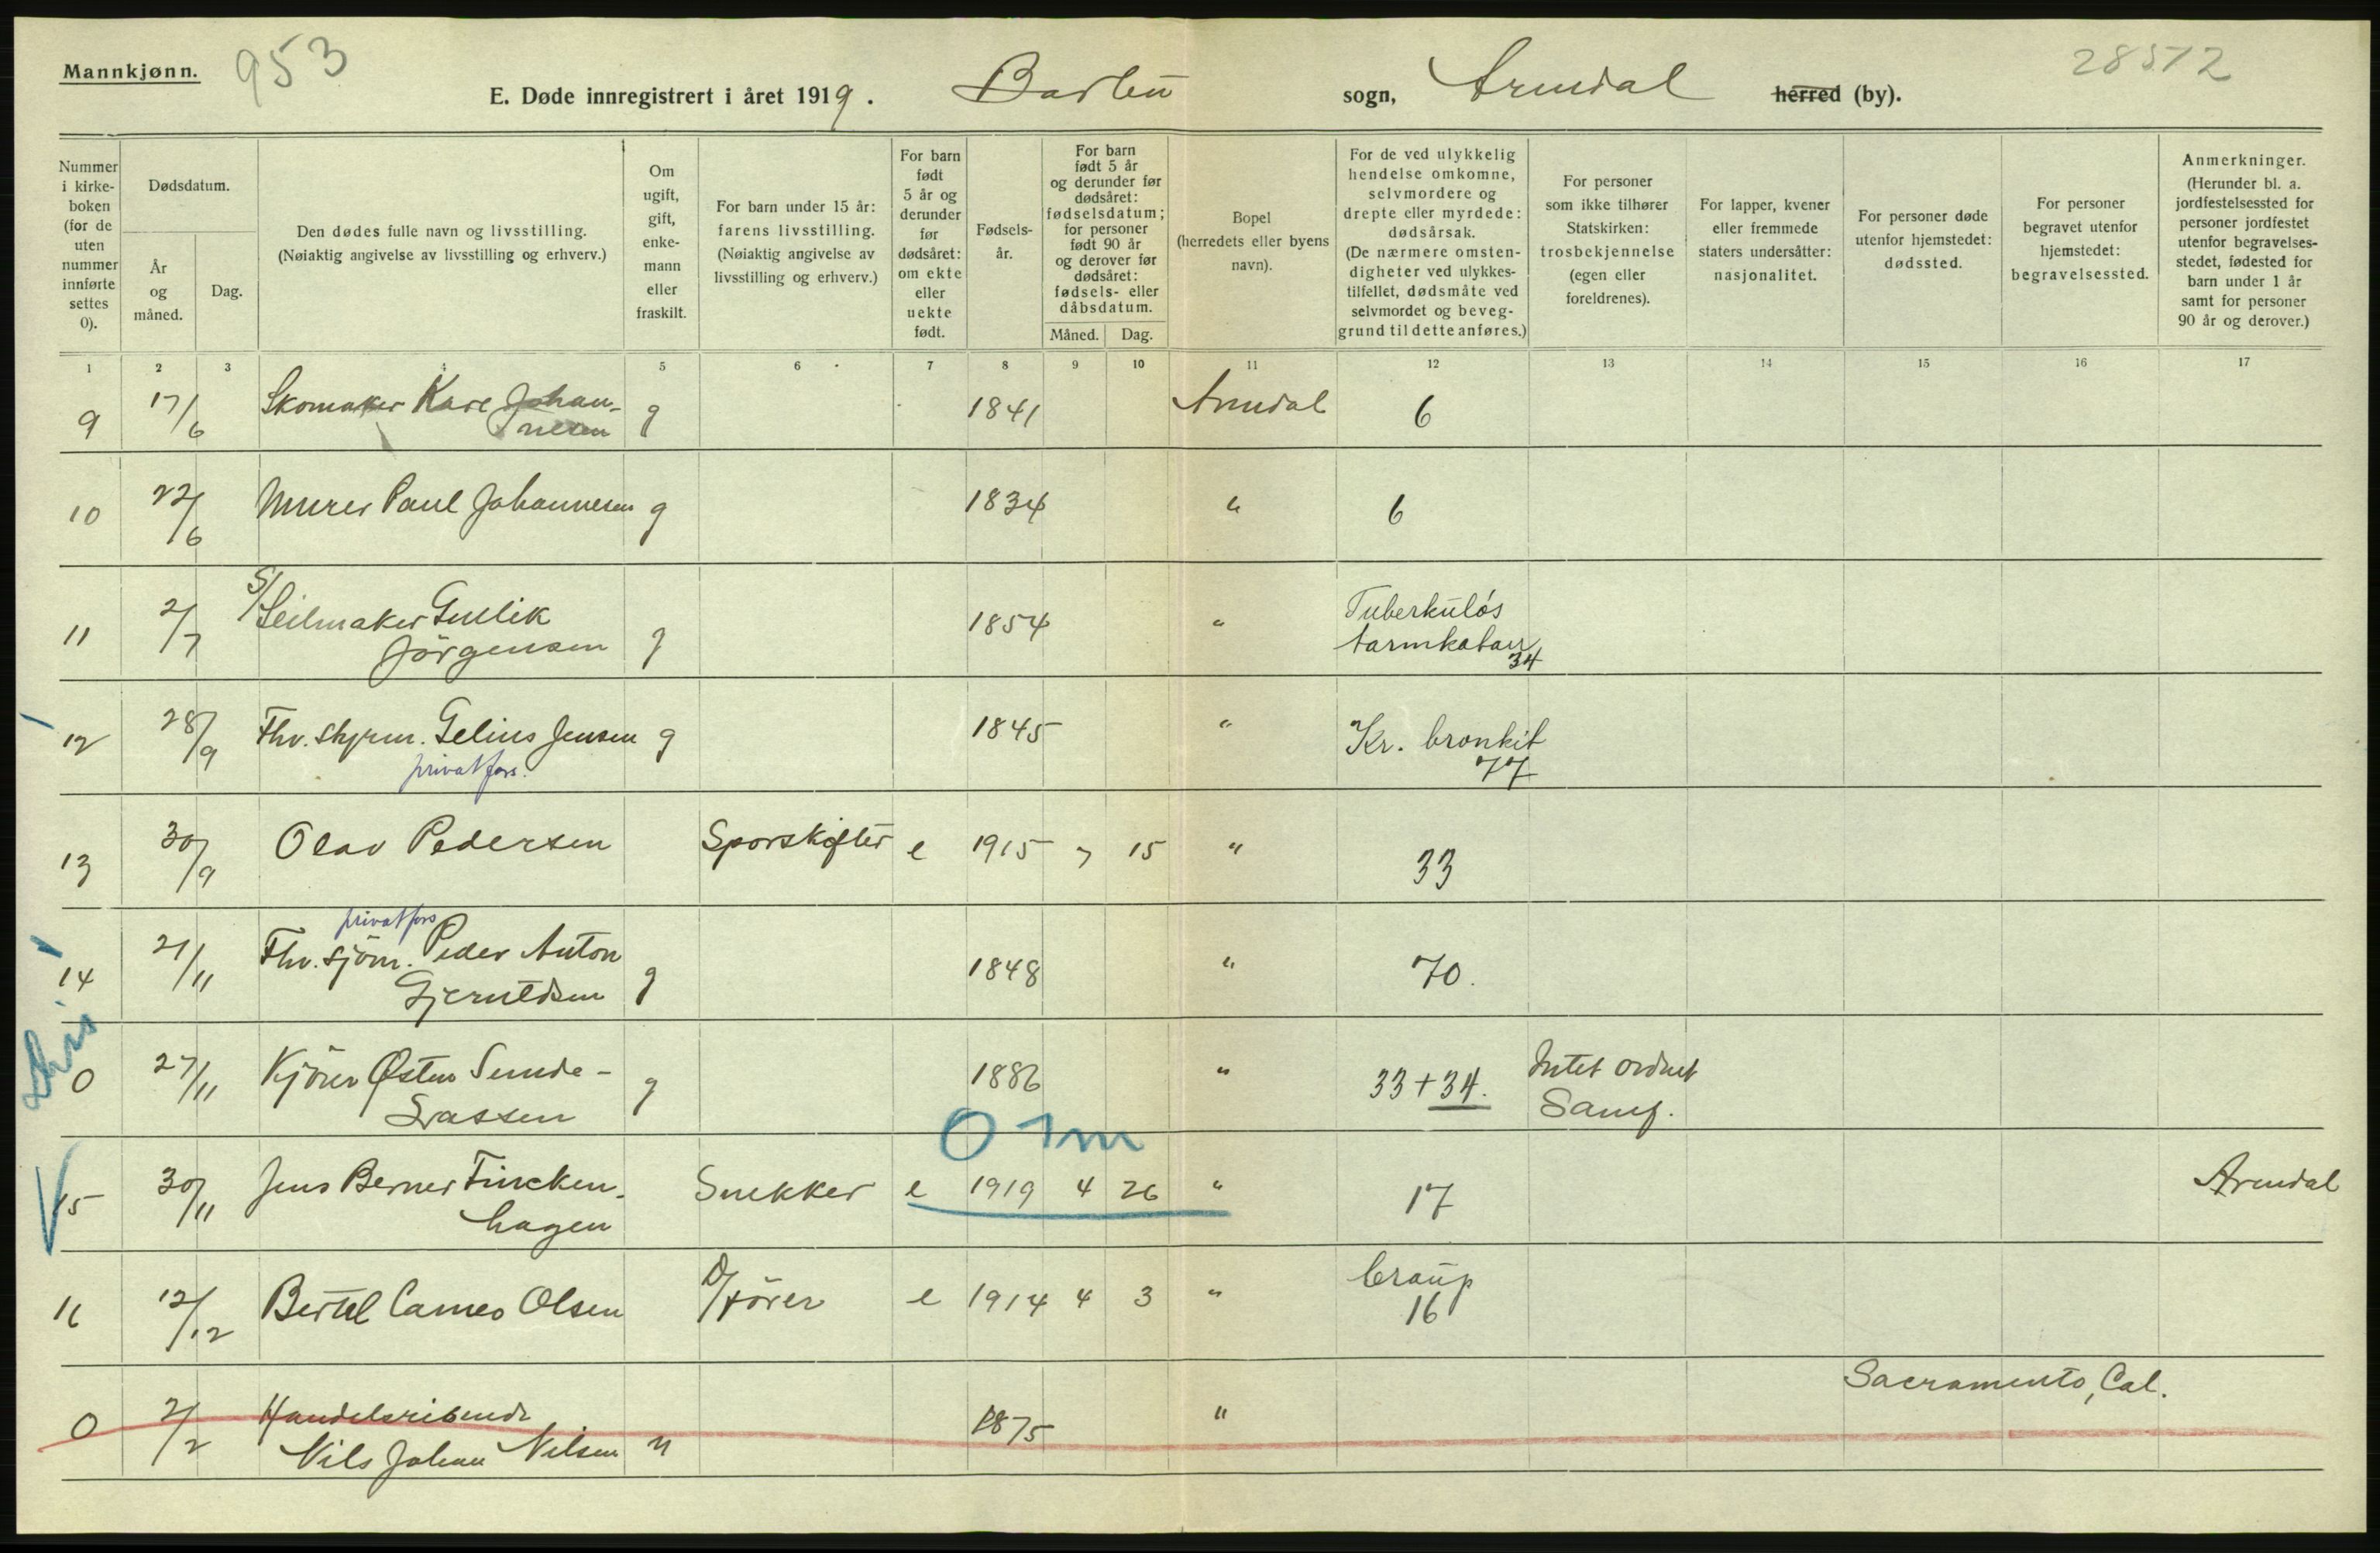 Mannkjønn. 953 28572
E. Døde innregistrert i året 1919. Barbu sogn, Arendal herred (by).
Nummer i kirkeboken (for de uten nummer innførte settes 0).
Dødsdatum.
År og måned.
Dag.
Den dødes fulle navn og livsstilling.
(Nøiaktig angivelse av livsstilling og erhverv.)
Om ugift, gift, enkemann eller fraskilt.
For barn under 15 år: farens livsstilling.
(Nøiaktig angivelse av livsstilling og erhverv.)
For barn født 5 år og derunder før dødsåret: om ekte eller uekte født.
Fødselsår.
For barn født 5 år og derunder før dødsåret: fødselsdatum; for personer født 90 år og derover før dødsåret: fødsels- eller dåbsdatum.
Måned. Dag.
Bopel
(herredets eller byens navn).
For de ved ulykkelig hendelse omkomne, selvmordere og drepte eller myrdede: dødsårsak.
(De nærmere omstendigheter ved ulykkestilfellet, dødsmåte ved selvmordet og beveggrund til dette anføres.)
For personer som ikke tilhører Statskirken: trosbekjennelse (egen eller foreldrenes).
For lapper, kvener eller fremmede staters undersåtter: nasjonalitet.
For personer døde utenfor hjemstedet: dødssted.
For personer begravet utenfor hjemstedet: begravelsessted.
Anmerkninger.
(Herunder bl. a. jordfestelsessted for personer jordfestet utenfor begravelsesstedet, fødested for barn under 1 år samt for personer 90 år og derover.)
1 2 3 4 5 6 7 8 9 10 11 12 13 14 15 16 17
9 17/6 Skomaker Kare Johan- g 1841 Arendal 6
nesen
10 22/6 Murer Paul Johannesen g 1834 " 6
11 2/7 S/Seilmaker Gullik g 1854 " Tuberkuløs
Jörgensen tarmkatarr 34
12 28/9 Fhv. styrm. Gelius Jensen g 1845 " Kr. bronkit
privatfors. 77
13 30/9 Olav Pedersen Sporskifter e 1915 7 15 " 33
privatfors
14 21/11 Fhv. sjöm. Peder Anton g 1848 " 70.
Gjeruldsen
0 27/11 Kjörer Østen Sunde- g 1886 " 33+34. Intet ordnet
Lassen Samf.
0 1m
15 30/11 Jens Berner Fincken- Snekker e 1919 4 26 " 17 Arendal
hagen
16 12/12 Bertel Cameo Olsen e 1914 4 3 " Croup
16
0 2/2 Handelsreisende u 1875 " Sacramento, Cal.
Nils Johan Nilsen